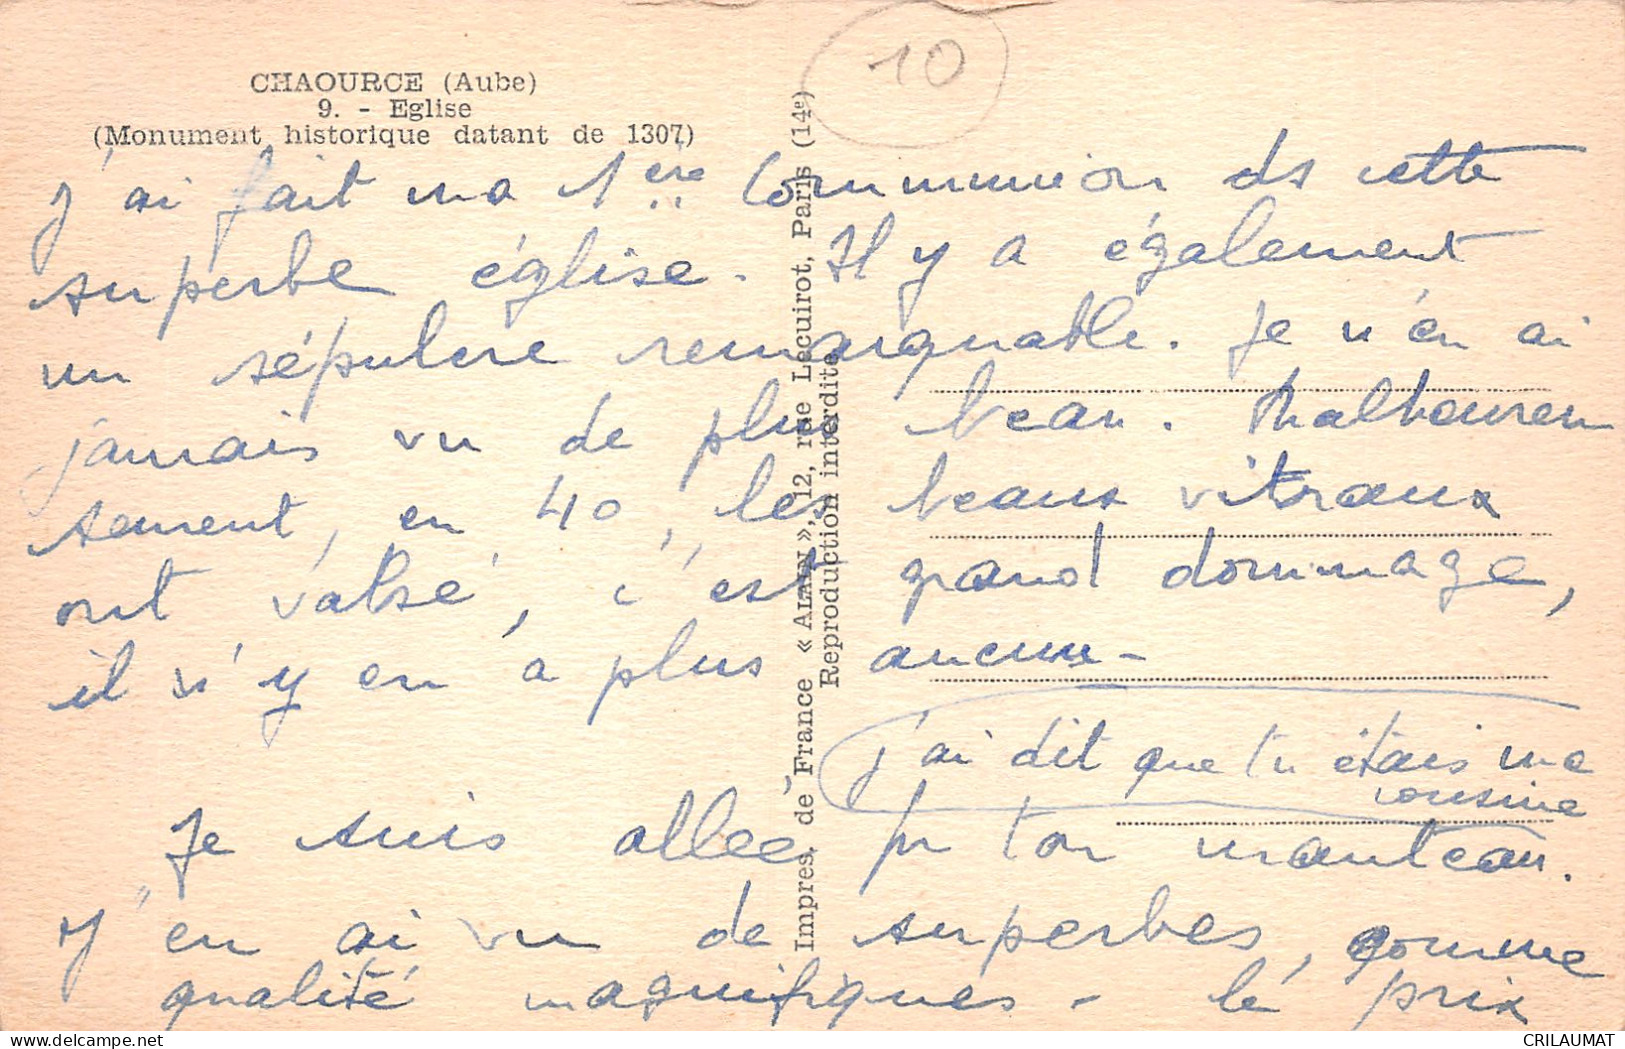 10
CHAOURCE (Aube)
9. - Eglise
(Monument historique datant de 1307)
J'ai fait ma 1ère Communion ds cette
superbe église. Il y a également
un sépulcre remarquable. Je n'en ai
jamais vu de plus beau. Malheureu
sement, en 40, les beaux vitraux
ont valsé, c'est grand dommage,
il n'y en a plus aucun -
j'ai dit que tu étais ma
cousine
Je suis allée pr ton manteau.
J'en ai vu de superbes, comme
qualité magnifiques - le prix
Impres. de France « ALAIN », 12, rue Lecuirot, Paris (14e)
Reproduction interdite
CRILAUMAT